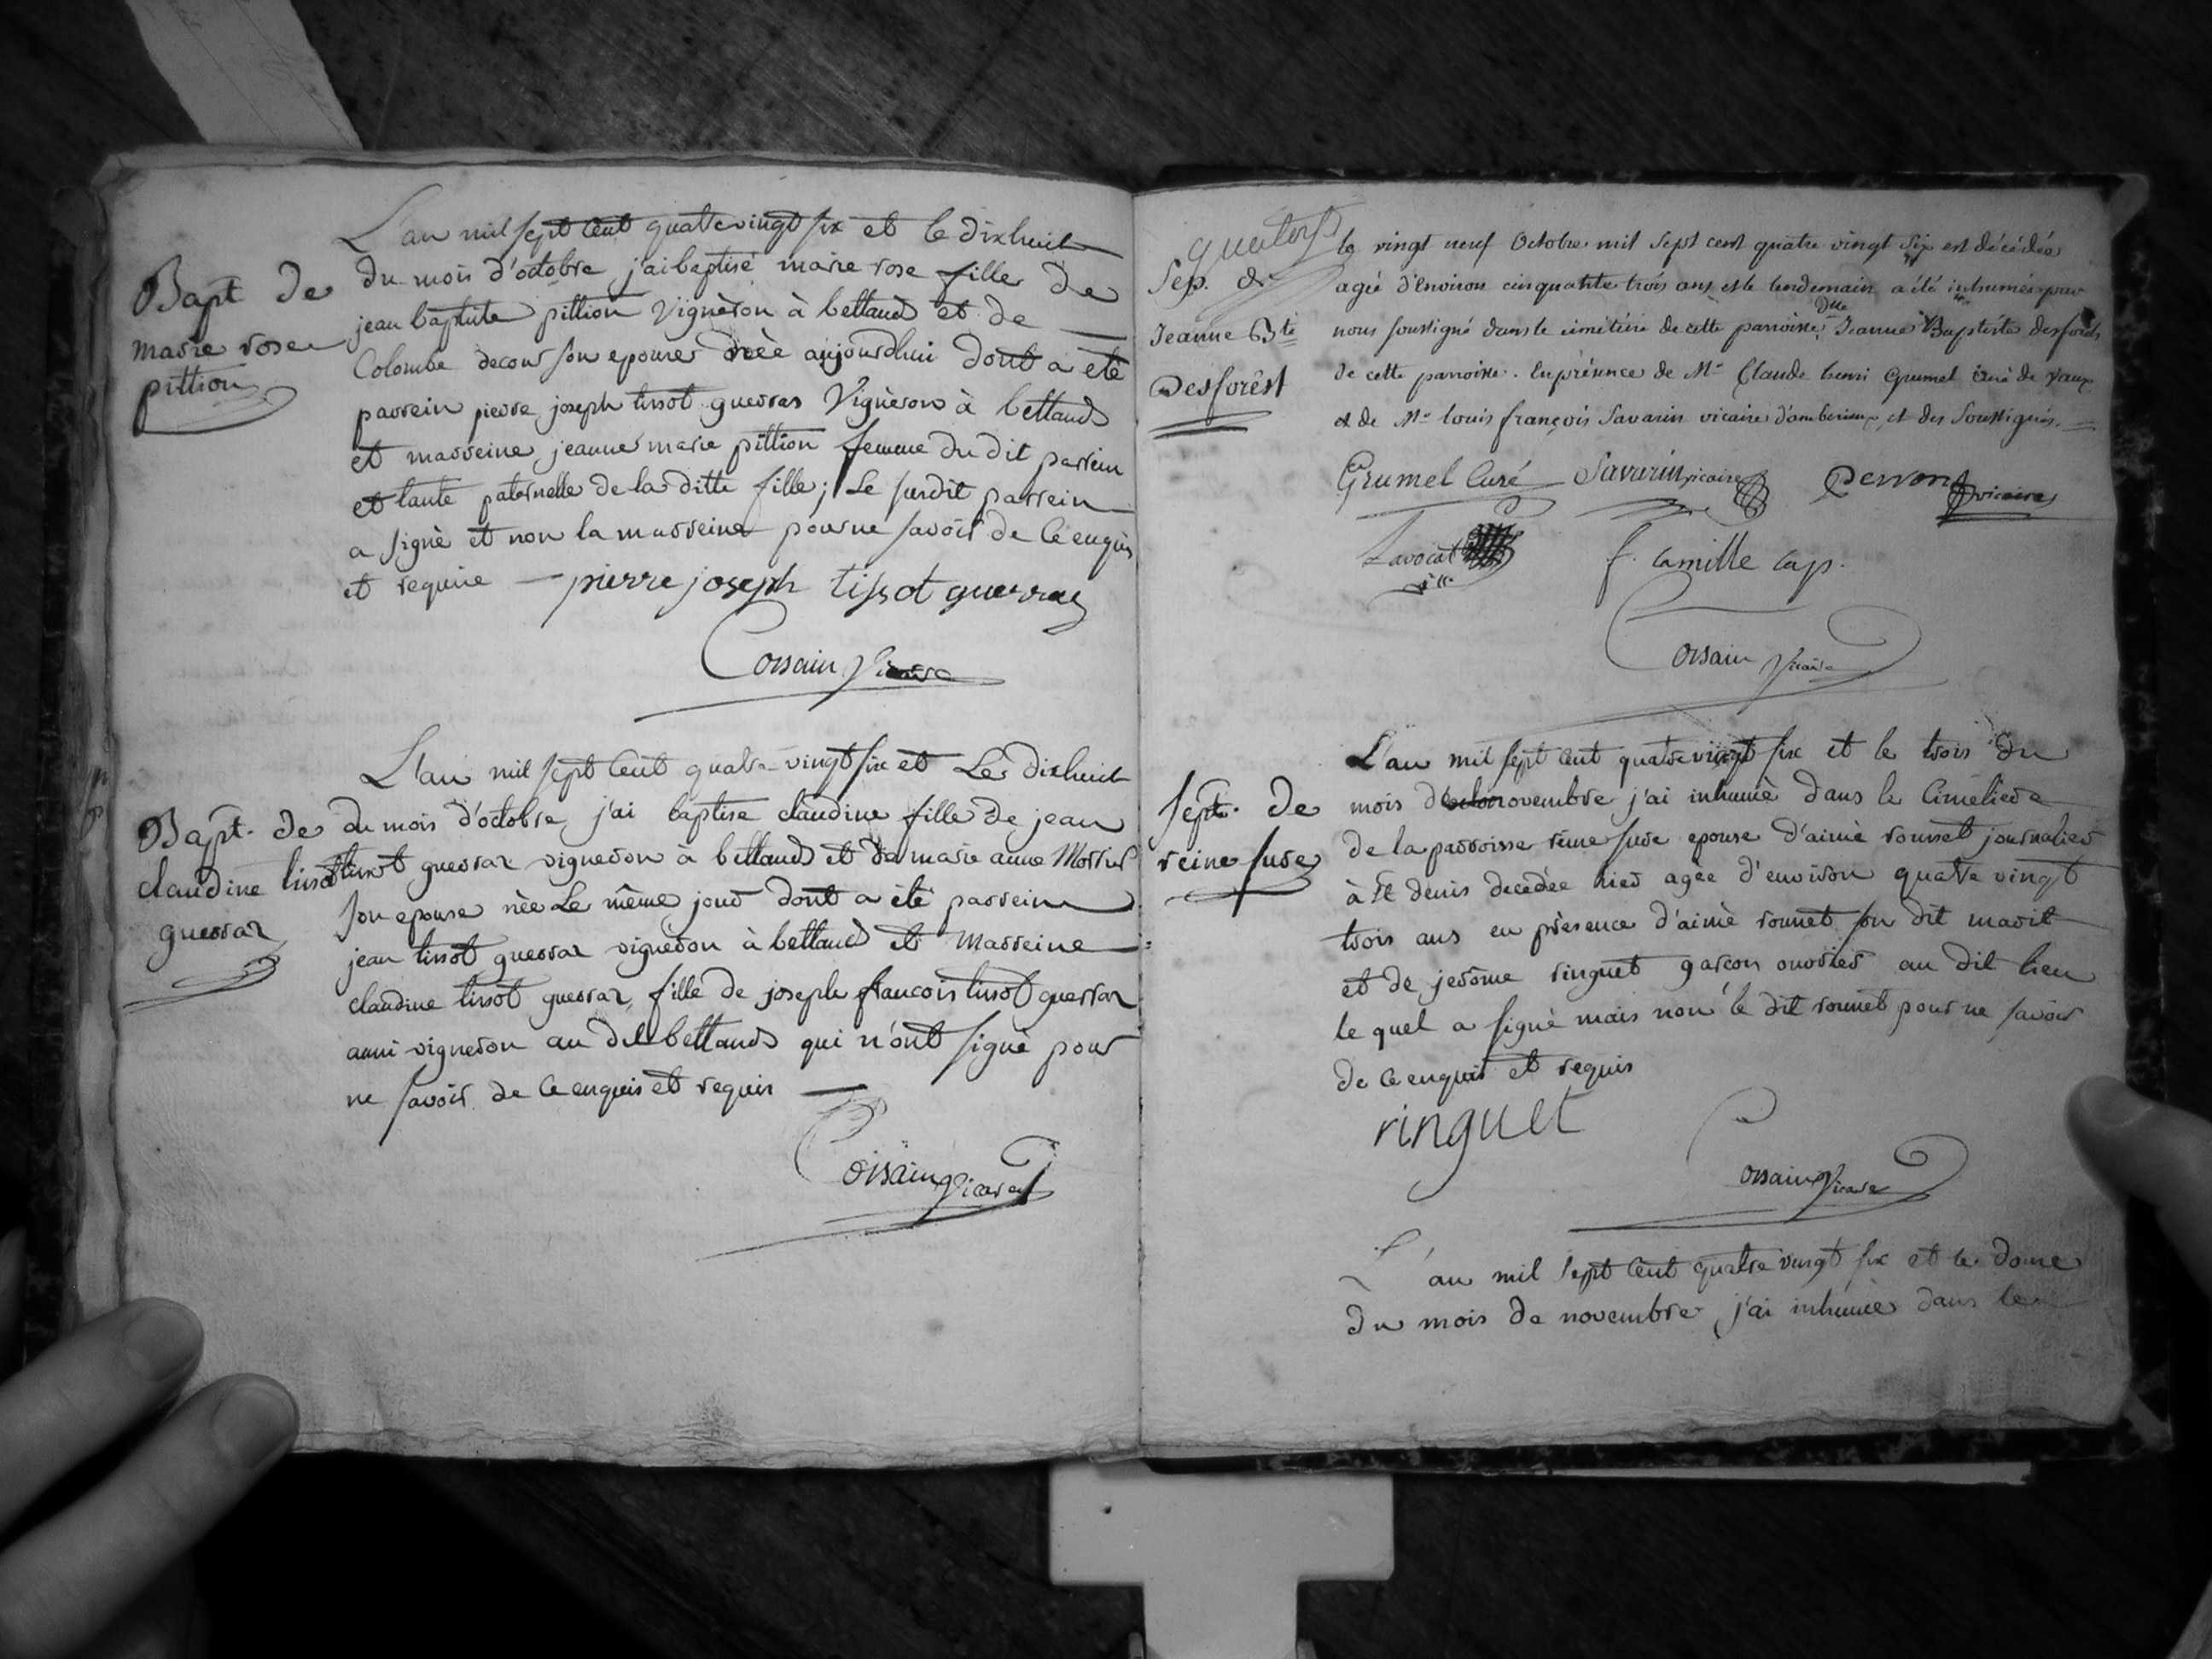 L'an mil sept cent quatrevingt six et le dixhuit
Bapt de
marie rose
pittion
du mois d'octobre j'ai baptisé marie rose fille de
jean baptiste pittion vigneron à bettand et de
Colombe decour son epouse née aujourdhui dont a été
parrein pierre joseph tissot guerras vigneron à bettand
et marreine jeanne marie pittion femme du dit parrein
et tante paternelle de la ditte fille; le susdit parrein
a signé et non la marreine pour ne savoir de ce enquis
et requise — pierre joseph tissot guerraz
Corsain vicaire
L'an mil sept cent quatre-vingt six et le dixhuit
Bapt. de
claudine tissot
guerraz
du mois d'octobre j'ai baptise claudine fille de jean
tissot guerraz vigneron à bettand et de marie anne
son epouse née le même jour dont a été parrein
jean tissot guerraz vigneron à bettand et marreine
claudine tissot guerraz fille de joseph francois tissot guerraz
aussi vigneron au dit bettand qui n'ont signé pour
ne savoir de ce enquis et requis
Corsain vicaire
quatorze
Sep. de
Jeanne Bte
Desforêst
le vingt neuf Octobre mil sept cent quatre vingt six est décédée
agée d'environ cinquante trois ans et le lendemain a été inhumée par
nous soussigné dans le cimétière de cette parroisse Dlle Jeanne Baptiste desforêts
de cette parroisse. En présence de Mre Claude henri Grumel curé de Vaux
et de Mre louis françois Savarin vicaire d'amberieux, et des Soussignés.
Grumel Curé Savarin vicaire Perron vicaire
Lavocat f. Camille cap.
Corsain vicaire
L'an mil sept cent quatrevingt six et le trois du
Sept. de
reine fure
mois novembre j'ai inhumè dans le Cimetiere
de la parroisse reine fure epouse d'aimé rousset journalier
à St denis decedée hier agée d'environ quatre vingt
trois ans en présence d'aimé rousset son dit marit
et de jerôme ringuet garcon ouvrier au dit lieu
le quel a signé mais non le dit rousset pour ne savoir
de ce enquis et requis
ringuet
Corsain vicaire
L'an mil sept cent quatre vingt six et le douze
du mois de novembre j'ai inhumée dans le